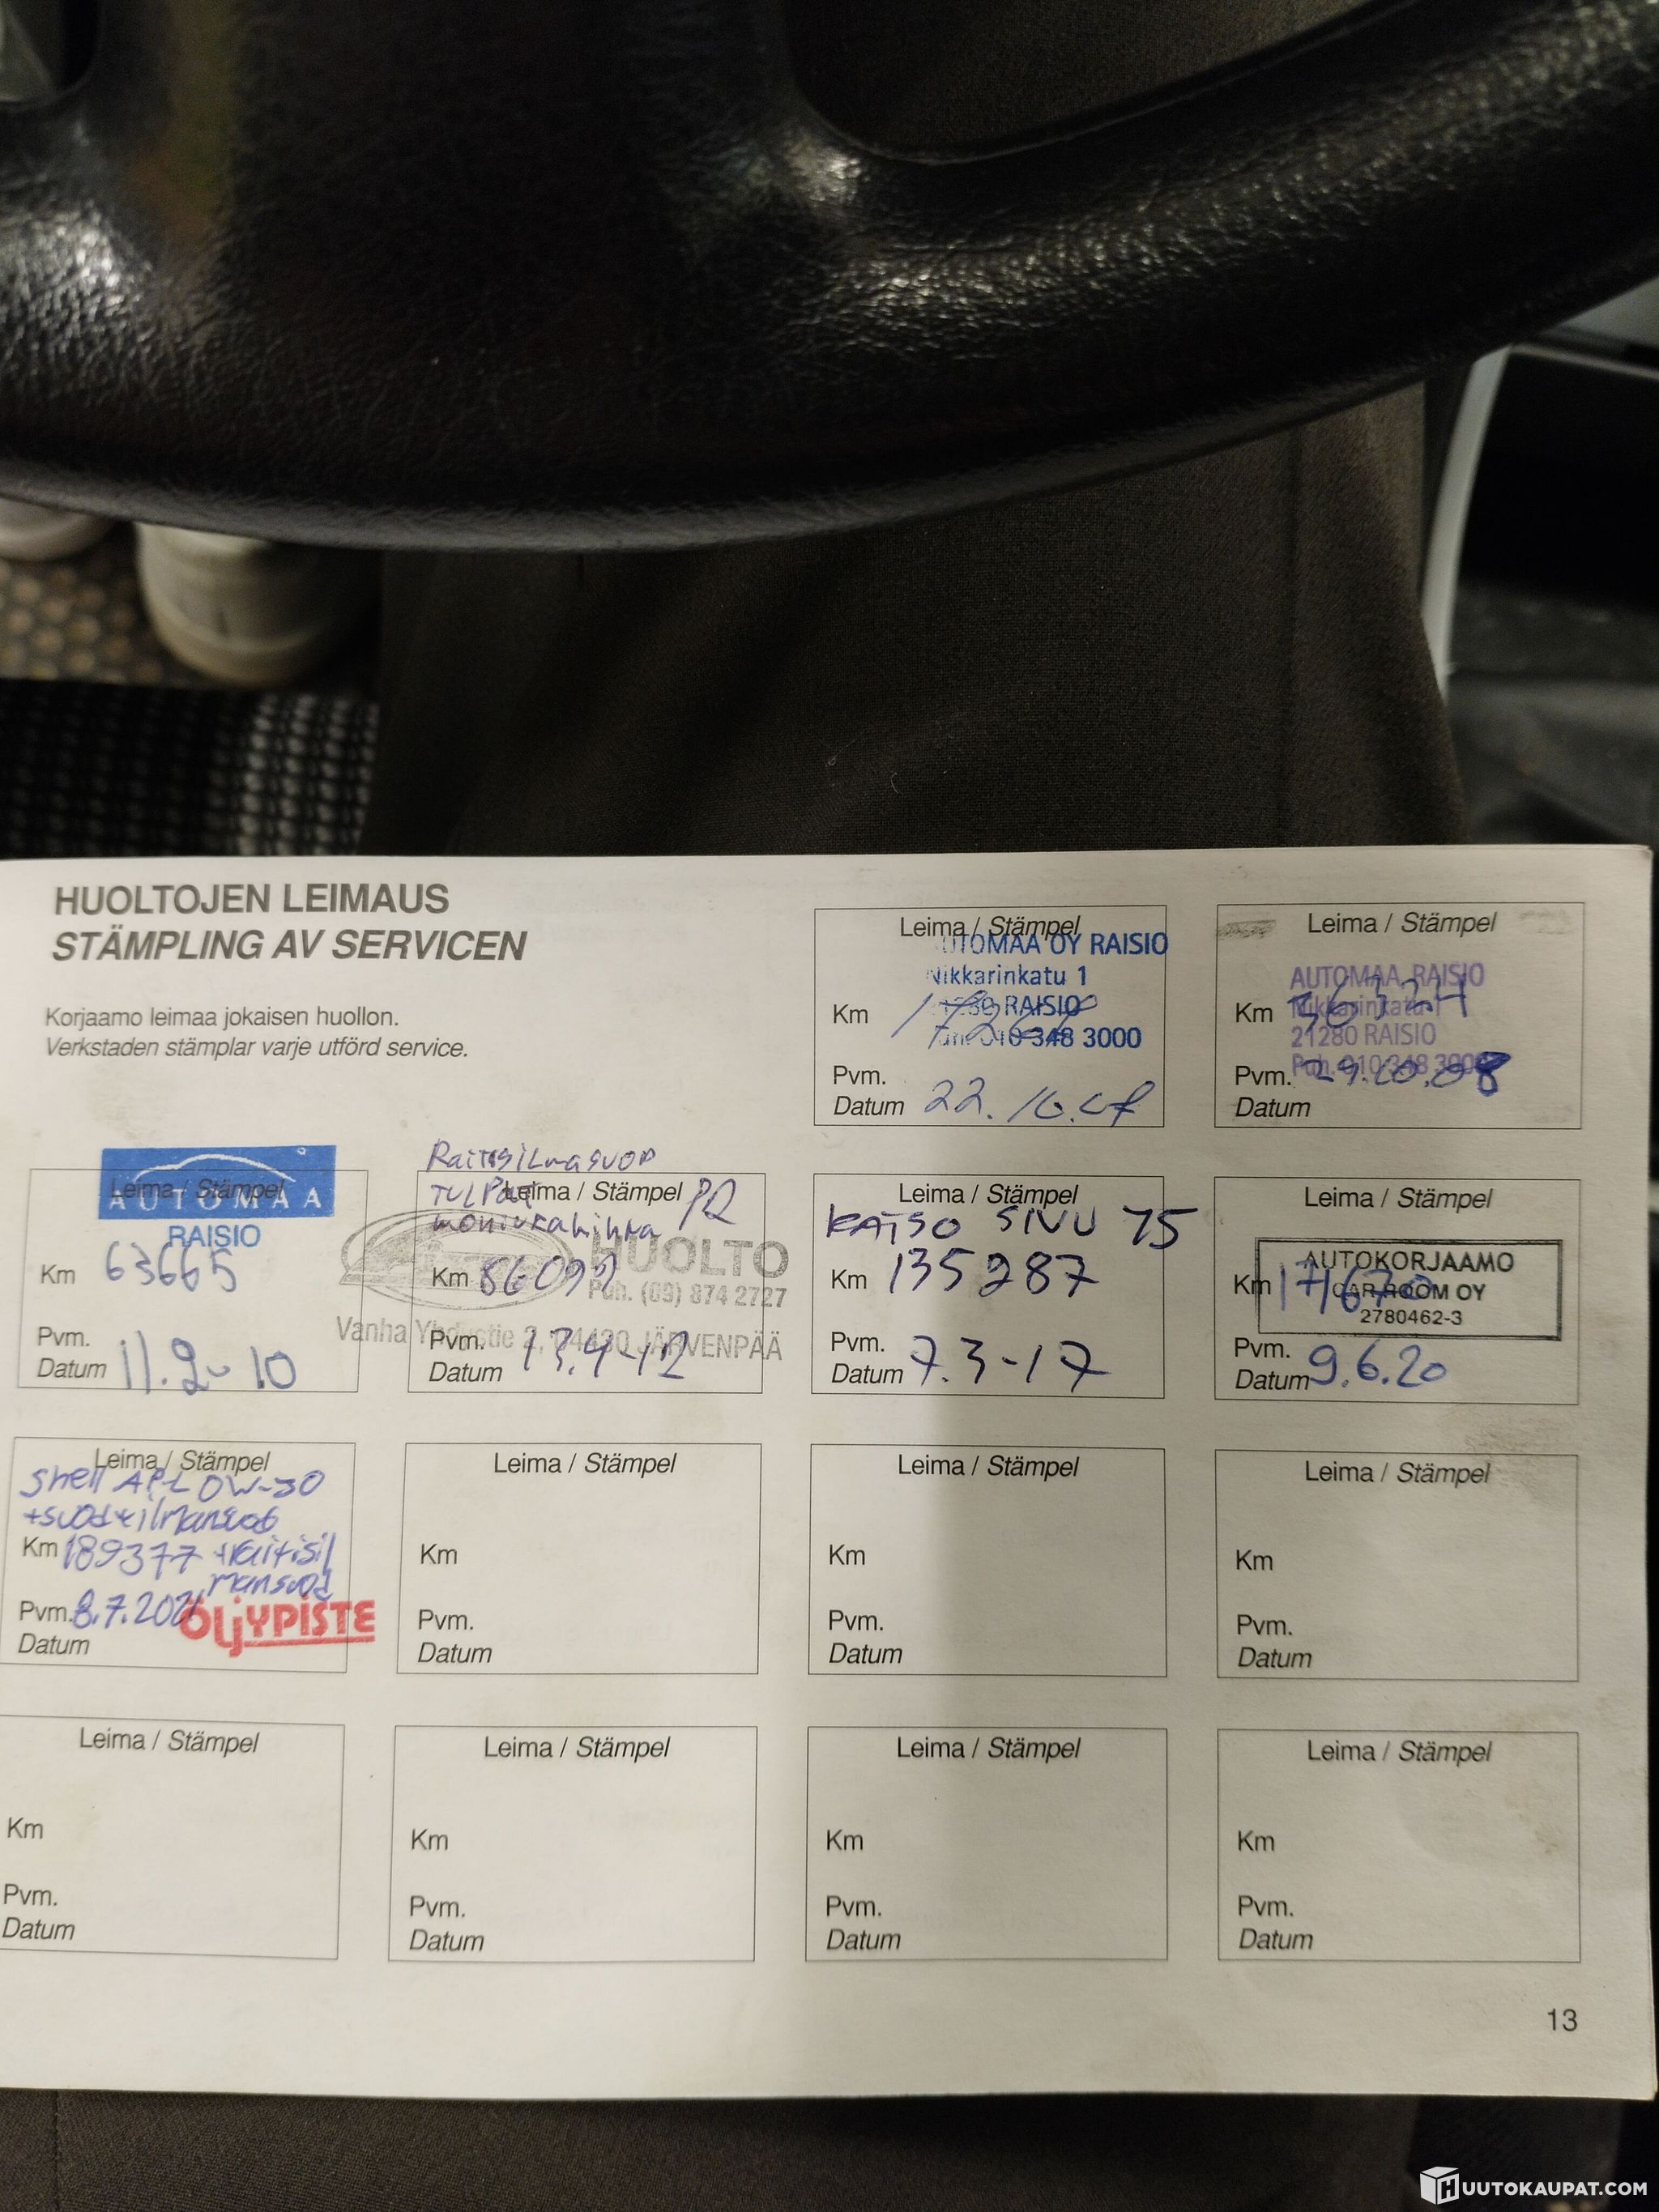 HUOLTOJEN LEIMAUS
STÄMPLING AV SERVICEN
Korjaamo leimaa jokaisen huollon.
Verkstaden stämplar varje utförd service.
Leima / Stämpel
UTOMAA OY RAISIO
Nikkarinkatu 1
RAISIO
010 348 3000
Km
Pvm.
Datum 22.10.
Leima / Stämpel
AUTOMAA RAISIO
Nikkarinkatu 1
21280 RAISIO
Puh. 010 348 3000
Km 36324
Pvm. 29.10.08
Datum
Leima / Stämpel
AUTOMAA
RAISIO
Km 63665
Pvm.
Datum 11.2-10
Raitisilmasuod
TULPAT
Leima / Stämpel
moniurahihna
HUOLTO
Puh. (09) 874 2727
Vanha Yhdystie 2, 04430 JÄRVENPÄÄ
Km 86092
Pvm.
Datum 13.4-12
Leima / Stämpel
KATSO SIVU 15
Km 135287
Pvm.
Datum 7.3-17
Leima / Stämpel
AUTOKORJAAMO
CAR ROOM OY
2780462-3
Km 171670
Pvm.
Datum 9.6.20
Leima / Stämpel
Shell AP-L 0W-30
+suod+ilmansuod
Km 189377 +raitisil
mansuod
Pvm. 8.7.2021
ÖLJYPISTE
Datum
Leima / Stämpel
Km
Pvm.
Datum
Leima / Stämpel
Km
Pvm.
Datum
Leima / Stämpel
Km
Pvm.
Datum
Leima / Stämpel
Km
Pvm.
Datum
Leima / Stämpel
Km
Pvm.
Datum
Leima / Stämpel
Km
Pvm.
Datum
Leima / Stämpel
Km
Pvm.
Datum
13
HUUTOKAUPAT.COM